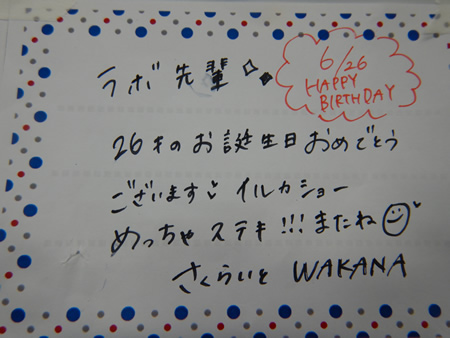 ラボ先輩
6/26
HAPPY
BIRTHDAY
26才のお誕生日おめでとう
ございます イルカショー
めっちゃステキ!!!またね
さくらいと WAKANA